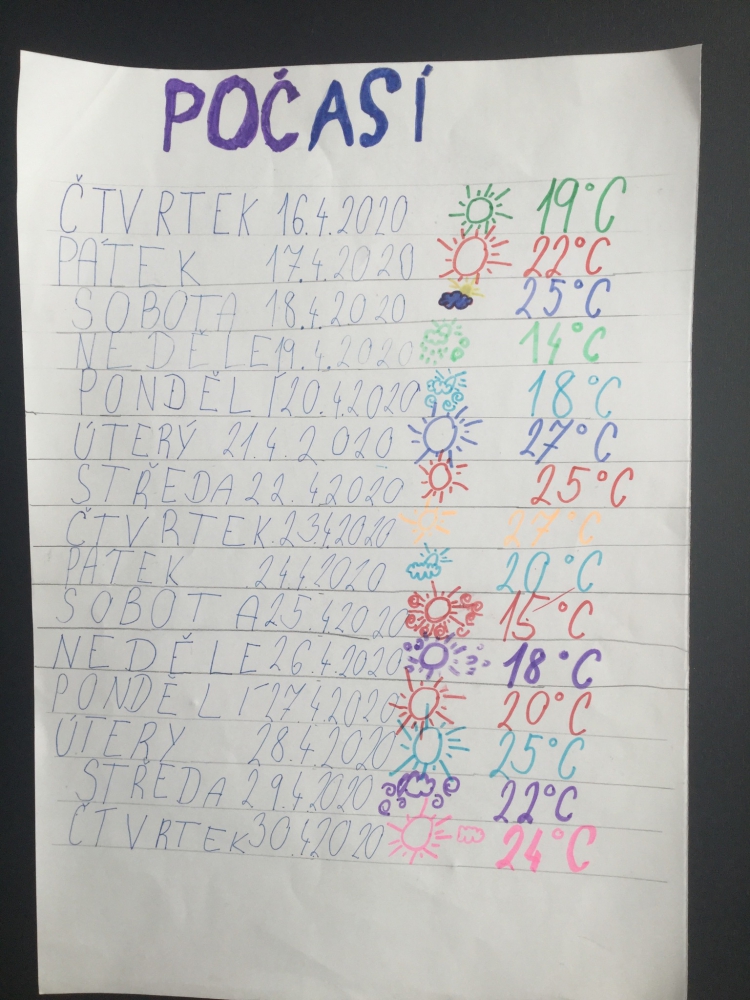 POČASÍ
ČTVRTEK 16.4.2020 19°C
PÁTEK 17.4.2020 22°C
SOBOTA 18.4.2020 25°C
NEDĚLE 19.4.2020 14°C
PONDĚLÍ 20.4.2020 18°C
ÚTERÝ 21.4.2020 27°C
STŘEDA 22.4.2020 25°C
ČTVRTEK 23.4.2020 27°C
PÁTEK 24.4.2020 20°C
SOBOTA 25.4.2020 15°C
NEDĚLE 26.4.2020 18°C
PONDĚLÍ 27.4.2020 20°C
ÚTERÝ 28.4.2020 25°C
STŘEDA 29.4.2020 22°C
ČTVRTEK 30.4.2020 24°C